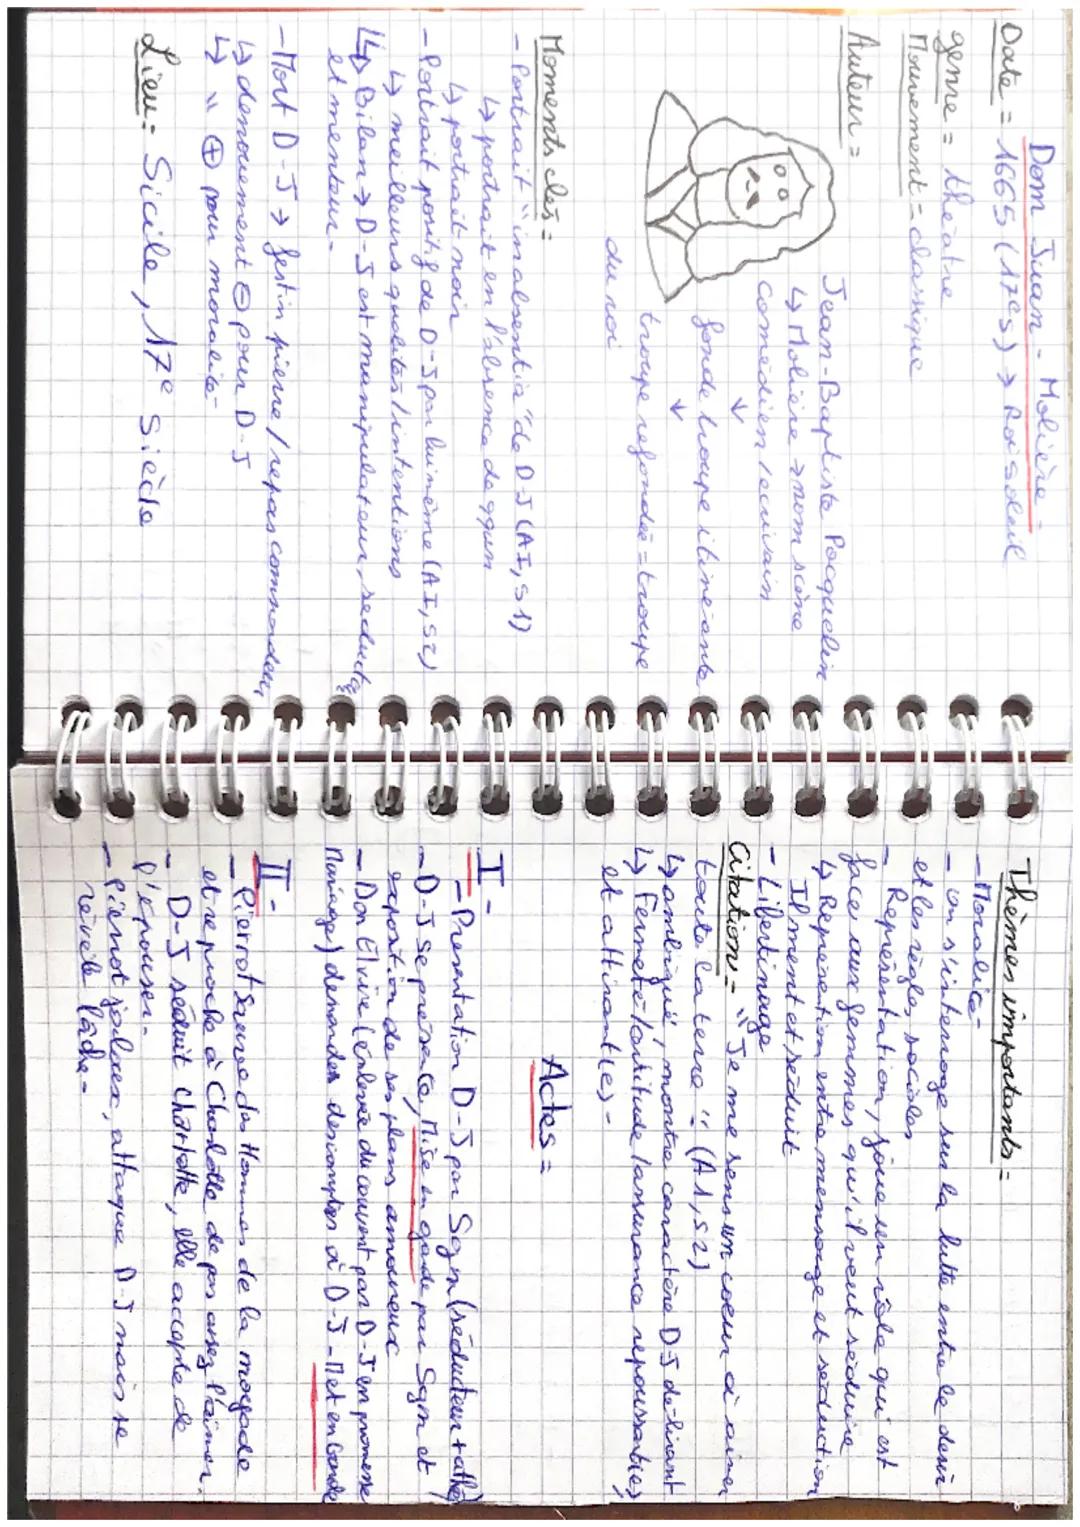 Dom Juan - Molière -
Date = 1665 (17es) → Roi Soleil
genre = théâtre
Mouvement = classique
Auteur =
Jean-Baptiste Pocquelin
↳ Molière → nom scène
comédien / écrivain
↓
fonde troupe itinérante
↓
troupe refondée = troupe
du roi
Moments clés =
- Portrait "in absentia" de D-J (AI, S1)
↳ portrait en l'absence de qqun
↳ portrait noir
- Portrait positif de D-J par lui même (AI, S2)
↳ meilleurs qualités / intentions
↳ Bilan → D-J est manipulateur, séducteur
et menteur -
- Mort D-J → festin pierre / repas commandeur
↳ dénouement ⊖ pour D-J
↳ " ⊕ pour moralité -
Lieu = Sicile, 17e siècle
Thèmes importants =
- Moralité -
- on s'interroge sur la lutte entre le désir
et les règles sociales
- Représentation, joue un rôle qui est
face aux femmes qu'il veut séduire
↳ Représention entre mensonge et séduction
Il ment et séduit
- Libertinage
Citation = "Je me sens un coeur à aimer
toute la terre" (A1, S2)
↳ ambigué, montre caractère D-J délirant
↳ Fermeté / certitude / assurance repoussante(s)
et attirante(s) -
Actes =
I -
- Présentation D-J par Sgan (séducteur +
- D-J se présente, Mise en garde par Sgan et
exposition de ses plans amoureux
- Don Elvire (Enlevée du couvent par D-J en promesse
Mariage) demandes des comptes à D-J - Met en garde
II -
- Pierrot sauve des Hommes de la noyade
et reproche à Charlotte de pas assez l'aimer.
- D-J séduit Charlotte, elle accepte de
l'épouser -
- Pierrot jaloux, attaque D-J mais se
révèle lâche -